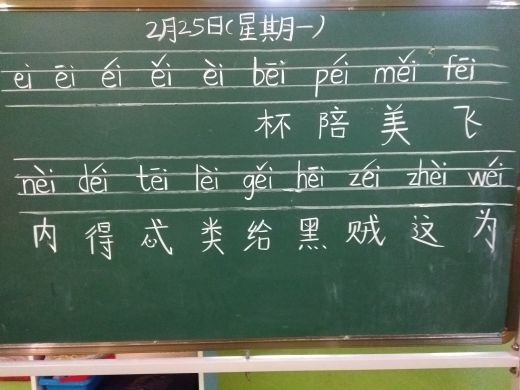 2月25日(星期一)
ei ēi éi ěi èi bēi péi měi fēi
杯 陪 美 飞
nèi déi tēi lèi gěi hēi zéi zhèi wéi
内 得 忒 类 给 黑 贼 这 为